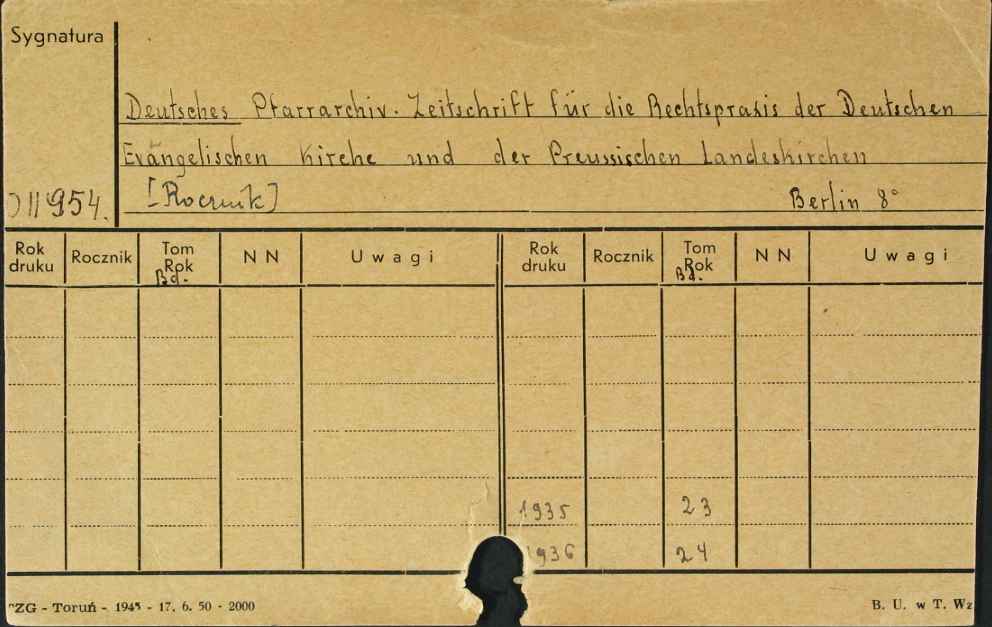 Sygnatura
Deutsches Pfarrarchiv. Zeitschrift für die Rechtspraxis der Deutschen
Evangelischen Kirche und der Preussischen Landeskirchen
II 954. [Rocznik] Berlin 8°
Rok druku Rocznik Tom Rok Bd. N N Uwagi Rok druku Rocznik Tom Rok Bd. N N Uwagi
1935 23
1936 24
ZG - Toruń - 1945 - 17. 6. 50 - 2000 B. U. w T. Wz